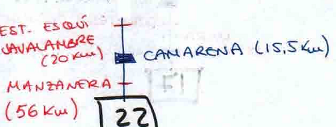 EST. ESQUÍ
JAVALAMBRE
(20 Km)
CAMARENA (15,5 Km)
MANZANERA
(56 Km)
22